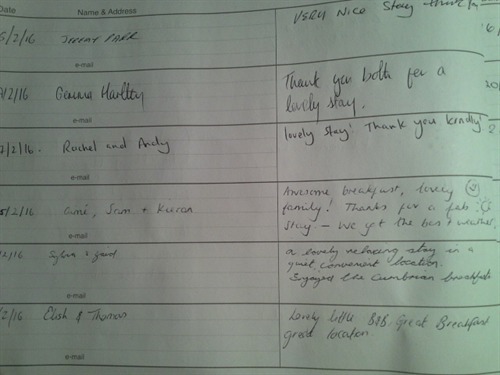 Date Name & Address
5/2/16
VERY Nice Stay
e-mail
2/16 Gemma Hartley
Thank you both for a
lovely stay.
e-mail
/2/16. Rachel and Andy
lovely stay! Thank you kindly!
e-mail
5/2/16 Sam + Kieran
Awesome breakfast, lovely
family! Thanks for a fab
stay - We got the best weather.
e-mail
/2/16
a lovely relaxing stay in a
quiet, convenient location.
Enjoyed the Cumbrian breakfast
e-mail
/2/16 Elish & Thomas
Lovely little B&B. Great Breakfast
great location.
e-mail